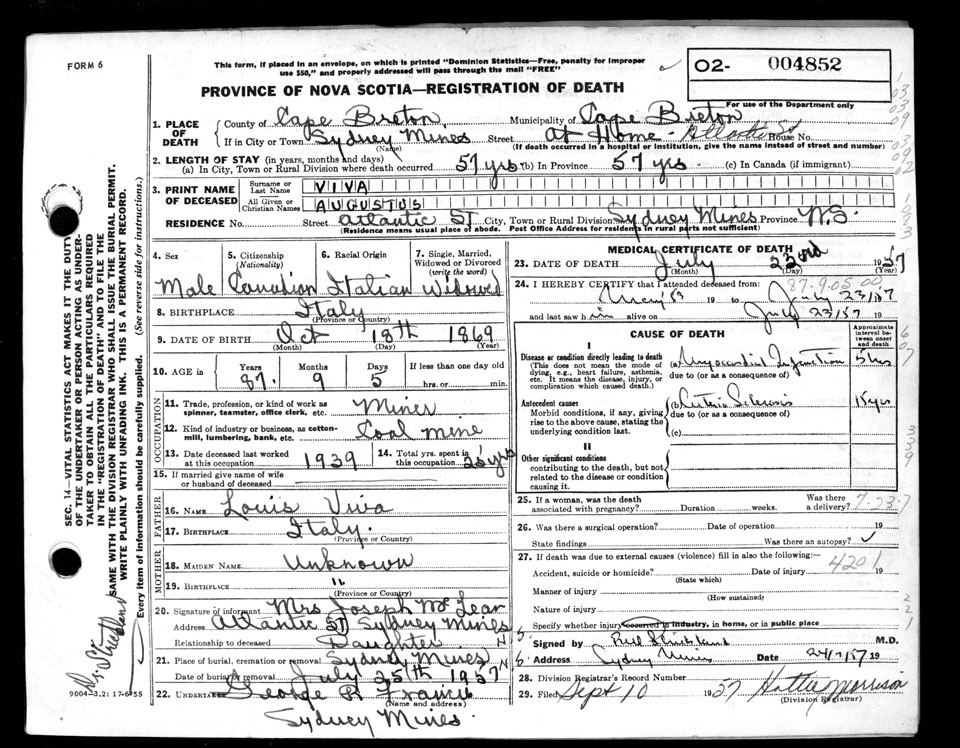 FORM 6
This form, if placed in an envelope, on which is printed "Dominion Statistics—Free, penalty for improper
use $50," and properly addressed will pass through the mail "FREE"
02- 004852
For use of the Department only
PROVINCE OF NOVA SCOTIA—REGISTRATION OF DEATH
1. PLACE OF DEATH
County of Cape Breton Municipality of Cape Breton
If in City or Town Sydney Mines Street At Home - Atlantic St House No.
(Name) (If death occurred in a hospital or institution, give the name instead of street and number)
2. LENGTH OF STAY (in years, months and days)
(a) In City, Town or Rural Division where death occurred 57 yrs (b) In Province 57 yrs. (c) In Canada (if immigrant)
3. PRINT NAME OF DECEASED
Surname or Last Name VIVA
All Given or Christian Names AUGUSTUS
RESIDENCE No. Street Atlantic ST City, Town or Rural Division Sydney Mines Province N.S.
(Residence means usual place of abode. Post Office Address for residents in rural parts not sufficient)
4. Sex 5. Citizenship (Nationality) 6. Racial Origin 7. Single, Married, Widowed or Divorced (write the word)
Male Canadian Italian Widowed
8. BIRTHPLACE Italy
(Province or Country)
9. DATE OF BIRTH Oct 18th 1869
(Month) (Day) (Year)
10. AGE in Years Months Days If less than one day old
87. 9 5 hrs. or min.
OCCUPATION
11. Trade, profession, or kind of work as spinner, teamster, office clerk, etc. Miner
12. Kind of industry or business, as cotton-mill, lumbering, bank, etc. Coal Mine
13. Date deceased last worked at this occupation 1939 14. Total yrs. spent in this occupation 25 yrs
15. If married give name of wife or husband of deceased
FATHER
16. NAME Louis Viva
17. BIRTHPLACE Italy.
(Province or Country)
MOTHER
18. MAIDEN NAME Unknown
19. BIRTHPLACE "
(Province or Country)
20. Signature of informant Mrs Joseph McLean
Address Atlantic ST Sydney Mines
Relationship to deceased Daughter
21. Place of burial, cremation or removal Sydney Mines
Date of burial or removal July 25th 1957
22. UNDERTAKER George R Francis
(Name and address)
Sydney Mines.
MEDICAL CERTIFICATE OF DEATH
23. DATE OF DEATH July 23rd 1957
(Month) (Day) (Year)
24. I HEREBY CERTIFY that I attended deceased from: 87-9-05 00
19 to July 23/57
and last saw him alive on July 23/57 19
CAUSE OF DEATH
Approximate interval between onset and death
I
Disease or condition directly leading to death
(This does not mean the mode of dying, e.g., heart failure, asthenia, etc. It means the disease, injury, or complication which caused death.)
(a) Myocardial Infarction 5 hrs
due to (or as a consequence of)
Antecedent causes
Morbid conditions, if any, giving rise to the above cause, stating the underlying condition last.
(b) Arterio Sclerosis 15 yrs
due to (or as a consequence of)
(c)
II
Other significant conditions
contributing to the death, but not related to the disease or condition causing it.
25. If a woman, was the death associated with pregnancy? Duration weeks. Was there a delivery? 7-23-7
26. Was there a surgical operation? Date of operation 19
State findings Was there an autopsy?
27. If death was due to external causes (violence) fill in also the following:—
4201
Accident, suicide or homicide? Date of injury 19
(State which)
Manner of injury
(How sustained)
Nature of injury
Specify whether injury occurred in industry, in home, or in public place
Signed by M.D.
Address Sydney Mines Date 24/7/57 19
28. Division Registrar's Record Number
29. Filed Sept 10 1957 Hattie Morrison
(Division Registrar)
9004-3.2: 17-6-55
SEC. 14—VITAL STATISTICS ACT MAKES IT THE DUTY
OF THE UNDERTAKER OR PERSON ACTING AS UNDERTAKER
TO OBTAIN ALL THE PARTICULARS REQUIRED
IN THE "REGISTRATION OF DEATH" AND TO FILE THE
SAME WITH THE DIVISION REGISTRAR WHO SHALL ISSUE THE BURIAL PERMIT.
WRITE PLAINLY WITH UNFADING INK. THIS IS A PERMANENT RECORD.
Every item of information should be carefully supplied. (See reverse side for instructions.)